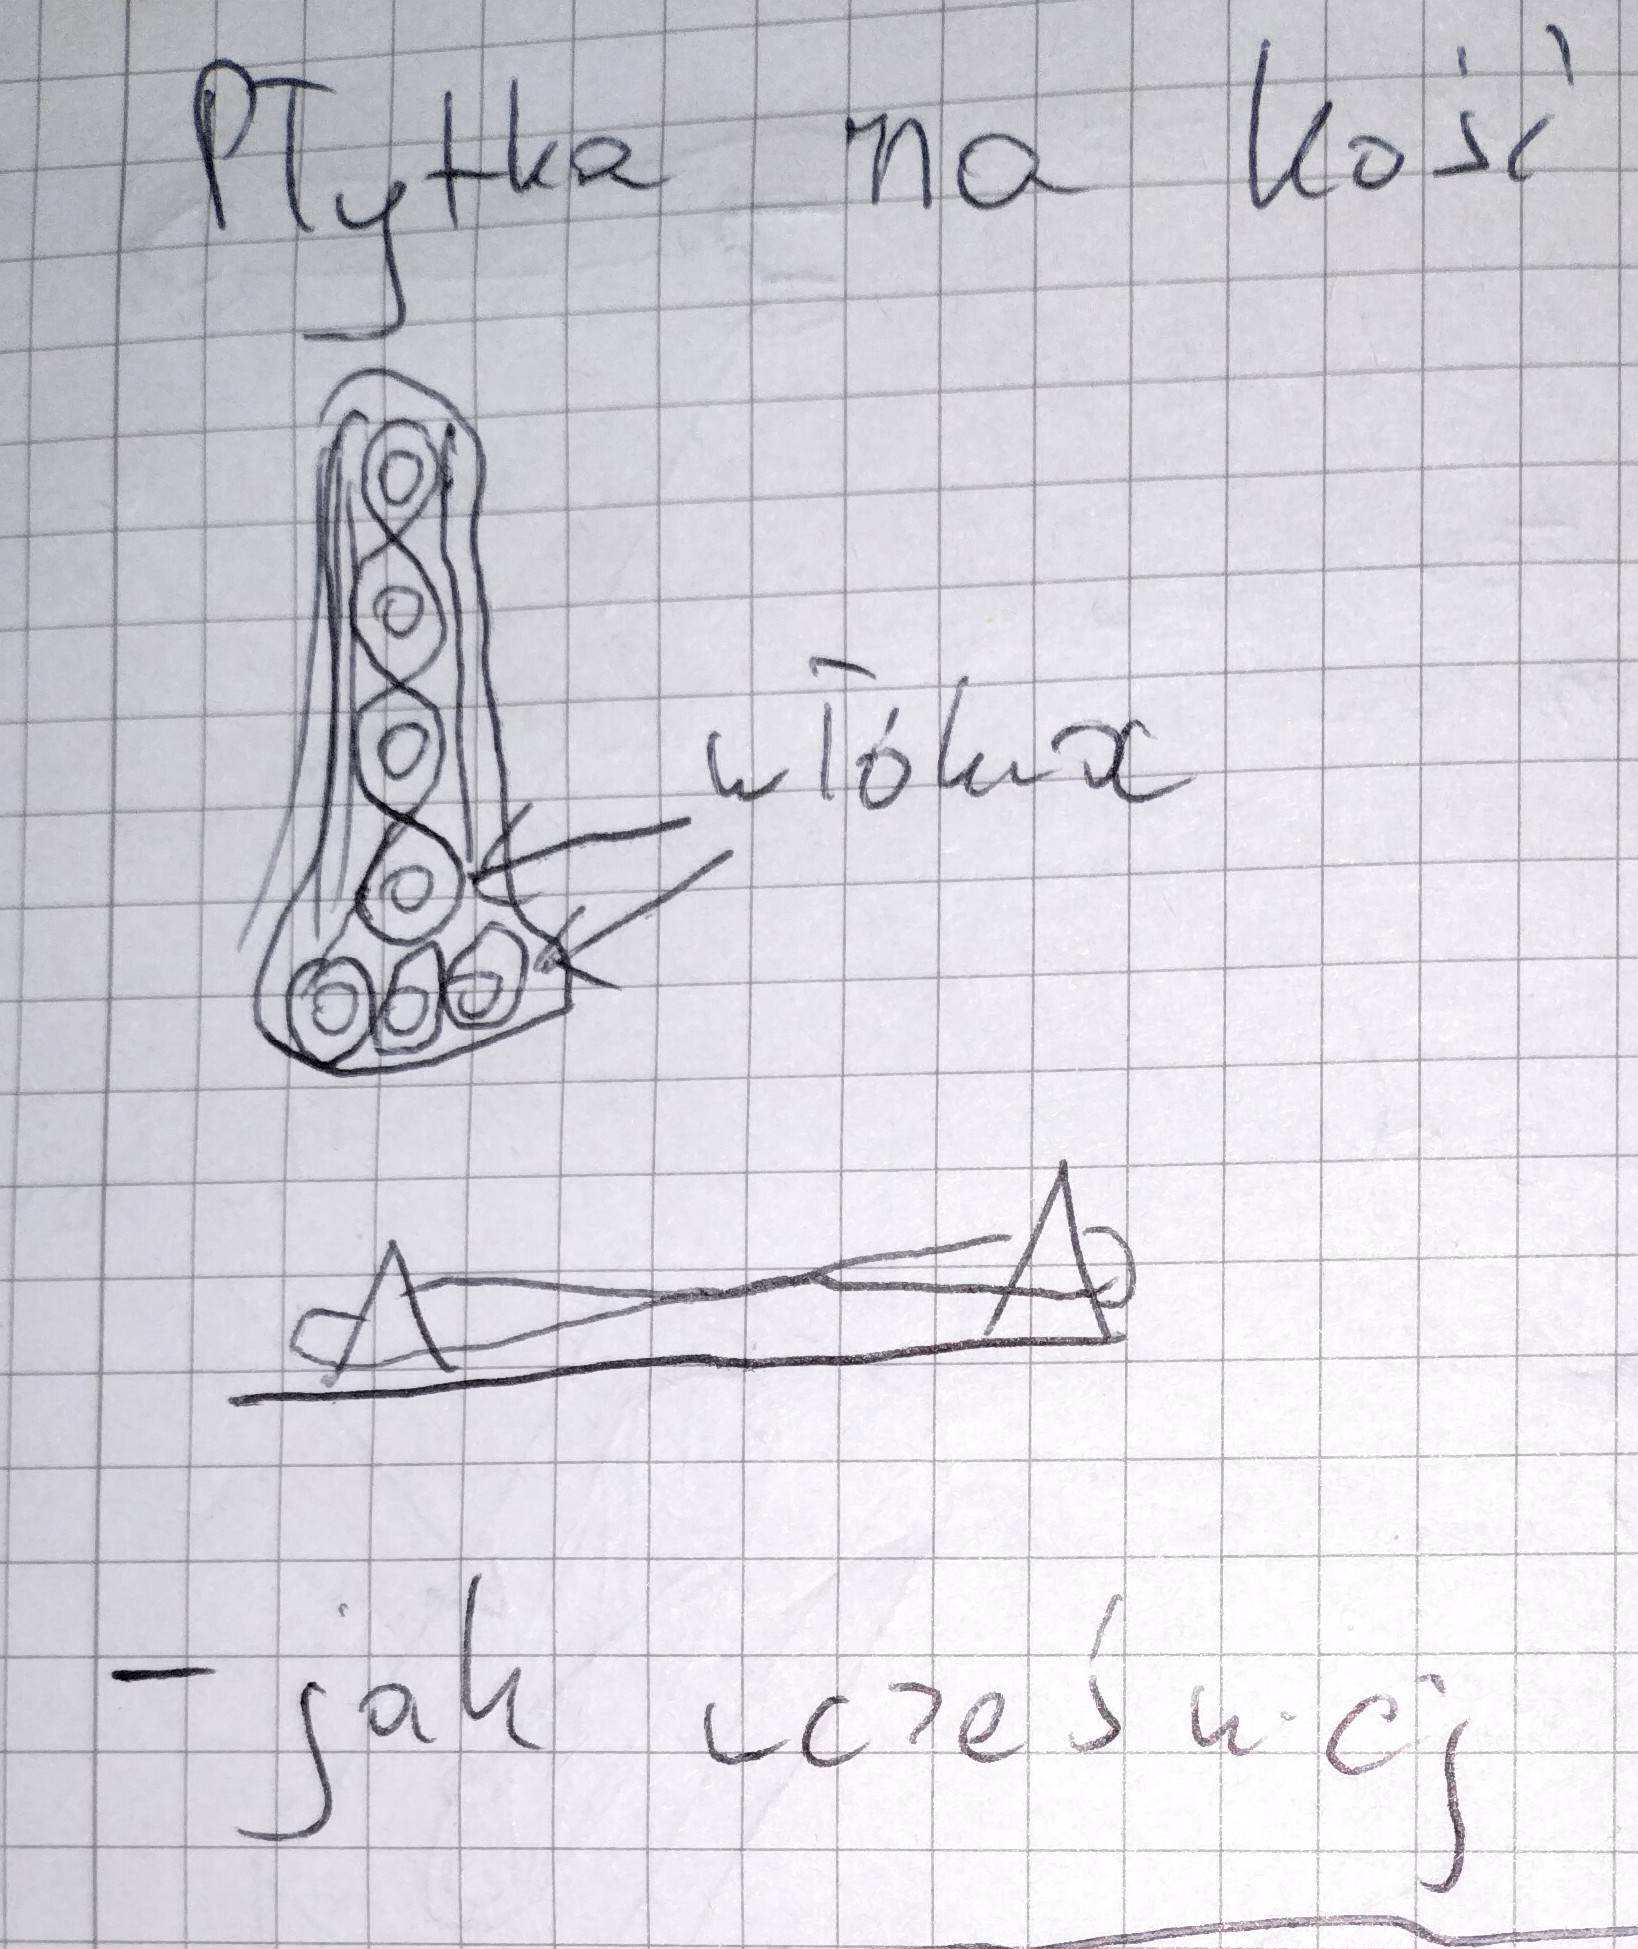 Płytka na kość
włókna
- jak wcześniej